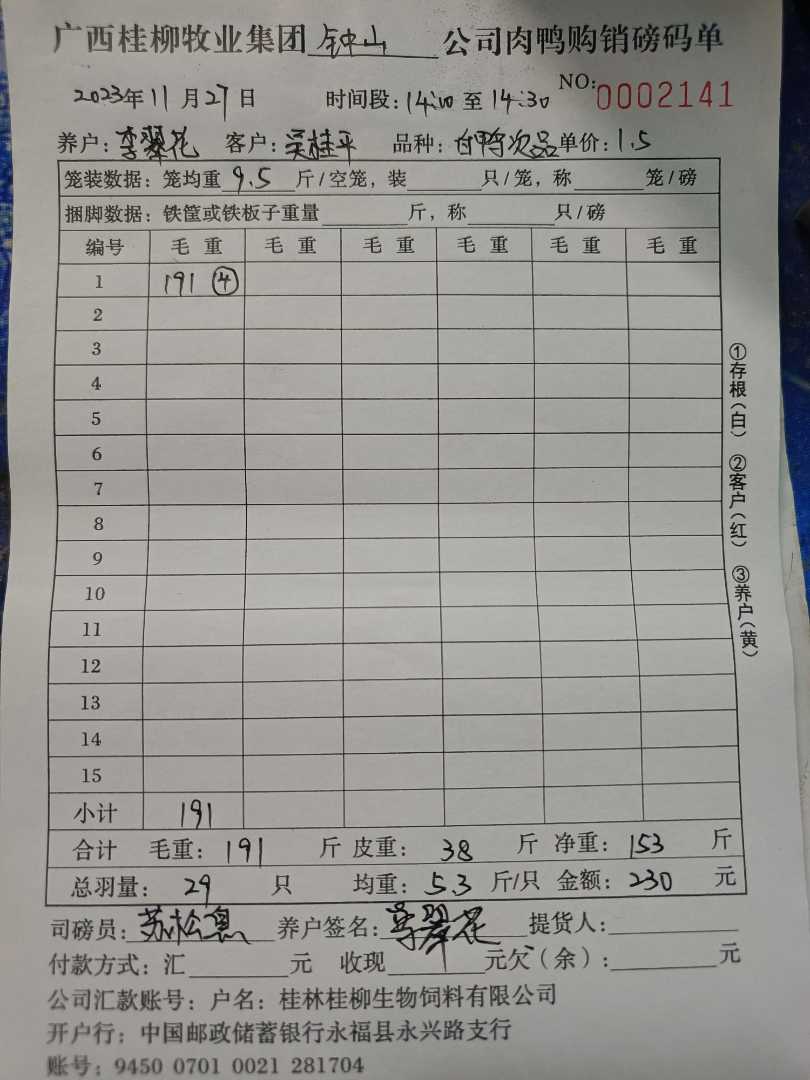 广西桂柳牧业集团 钟山 公司肉鸭购销磅码单
2023年11月27日 时间段:14:00至14:30 NO:0002141
养户:李翠花 客户:吴桂平 品种:白鸭次品 单价:1.5
笼装数据:笼均重 9.5 斤/空笼,装 只/笼,称 笼/磅
捆脚数据:铁筐或铁板子重量 斤,称 只/磅
编号 毛重 毛重 毛重 毛重 毛重 毛重
1 191 ④
2
3
4
5
6
7
8
9
10
11
12
13
14
15
小计 191
合计 毛重:191 斤 皮重:38 斤 净重:153 斤
总羽量:29 只 均重:5.3 斤/只 金额:230 元
司磅员:苏松 养户签名:李翠花 提货人:
付款方式:汇 元 收现 元欠(余): 元
公司汇款账号:户名:桂林桂柳生物饲料有限公司
开户行:中国邮政储蓄银行永福县永兴路支行
账号:9450 0701 0021 281704
①存根(白) ②客户(红) ③养户(黄)